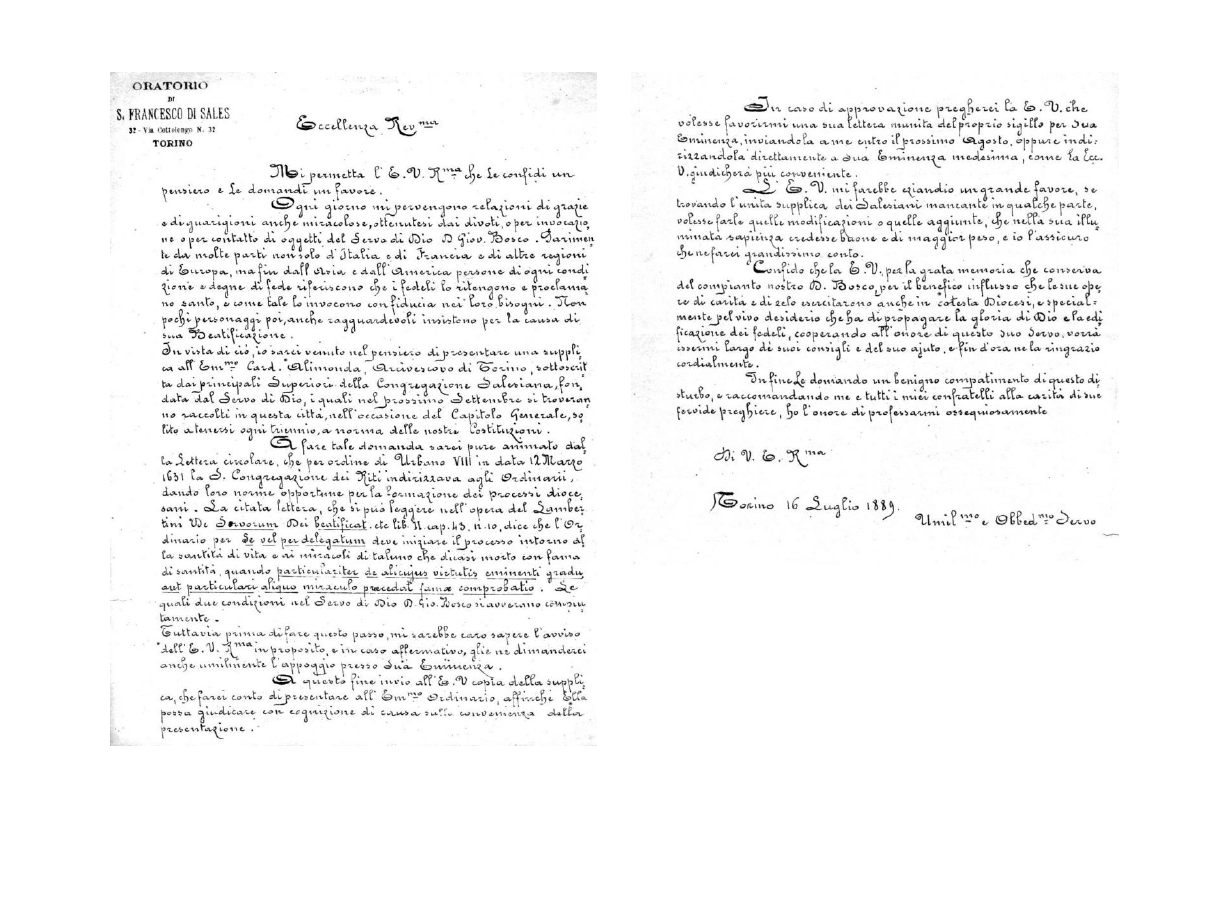 ORATORIO
DI
S. FRANCESCO DI SALES
32 - Via Cottolengo N. 32
TORINO
Eccellenza Rev.ma
Mi permetta l'E. V. R.ma che Le confidi un
pensiero e Le domandi un favore.
Ogni giorno mi pervengono relazioni di grazie
e di guarigioni anche miracolose, ottenutesi dai divoti, o per invocazio,
ne o per contatto di oggetti del Servo di Dio D. Giov. Bosco. Parimen,
te da molte parti non solo d'Italia e di Francia e di altre regioni
di Europa, ma fin dall'Asia e dall'America persone di ogni condi,
zione e degne di fede riferiscono che i fedeli lo ritengono e proclama,
no santo, e come tale lo invocono con fiducia nei loro bisogni. Non
pochi personaggi poi, anche ragguardevoli insistono per la causa di
sua Beatificazione.
In vista di ciò, io sarei venuto nel pensiero di presentare una suppli,
ca all'Em.mo Card. Alimonda, Arcivescovo di Torino, sottoscrit,
ta dai principali Superiori della Congregazione Salesiana, fon,
data dal Servo di Dio, i quali nel prossimo Settembre si troveran,
no raccolti in questa città, nell'occasione del Capitolo Generale, so,
lito a tenersi ogni triennio, a norma delle nostre Costituzioni.
A fare tale domanda sarei pure animato dal,
la Lettera circolare, che per ordine di Urbano VIII in data 12 Marzo
1631 la S. Congregazione dei Riti indirizzava agli Ordinarii,
dando loro norme opportune per la formazione dei processi dioce,
sani. La citata lettera, che si può leggere nell'opera del Lamber,
tini De Servorum Dei beatificat. etc lib. II. cap. 43. n. 10, dice che l'Or,
dinario per se vel per delegatum deve iniziare il processo intorno al,
la santità di vita e ai miracoli di taluno che dicasi morto con fama
di santità, quando particulariter de alicujus virtutis eminenti gradu,
aut particulari aliquo miraculo præcedat famæ comprobatio. Le
quali due condizioni nel Servo di Dio D. Gio. Bosco si avverano compiu,
tamente.
Tuttavia prima di fare questo passo, mi sarebbe caro sapere l'avviso
dell'E. V. R.ma in proposito, e in caso affermativo, glie ne dimanderei
anche umilmente l'appoggio presso Sua Eminenza.
A questo fine invio all'E. V copia della suppli,
ca, che farei conto di presentare all'Em.mo Ordinario, affinchè Ella
possa giudicare con cognizione di causa sulla convenienza della
presentazione.
In caso di approvazione pregherei la E. V. che
volesse favorirmi una sua lettera munita del proprio sigillo per Sua
Eminenza, inviandola a me entro il prossimo Agosto, oppure indi-
rizzandola direttamente a Sua Eminenza medesima, come la Ecc.
V. giudicherà più conveniente.
L'E. V. mi farebbe eziandio un grande favore, se
trovando l'unita supplica dei Salesiani mancante in qualche parte,
volesse farle quelle modificazioni o quelle aggiunte, che nella sua illu,
minata sapienza credesse buone e di maggior peso, e io l'assicuro
che ne farei grandissimo conto.
Confido che la E. V., per la grata memoria che conserva
del compianto nostro D. Bosco, per il benefico influsso che le sue ope,
re di carità e di zelo esercitarono anche in cotesta Diocesi, e special-
mente pel vivo desiderio che ha di propagare la gloria di Dio e la edi,
ficazione dei fedeli, cooperando all'onore di questo suo Servo, vorrà
essermi largo de' suoi consigli e del suo ajuto, e fin d'ora ne la ringrazio
cordialmente.
In fine Le domando un benigno compatimento di questo di,
sturbo, e raccomandando me e tutti i miei confratelli alla carità di sue
fervide preghiere, ho l'onore di professarmi ossequiosamente
Di V. E. R.ma
Torino 16 Luglio 1889.
Umil.mo e Obbed.mo Servo